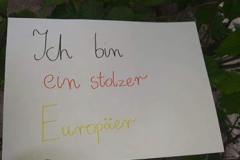 Ich bin
ein stolzer
Europäer